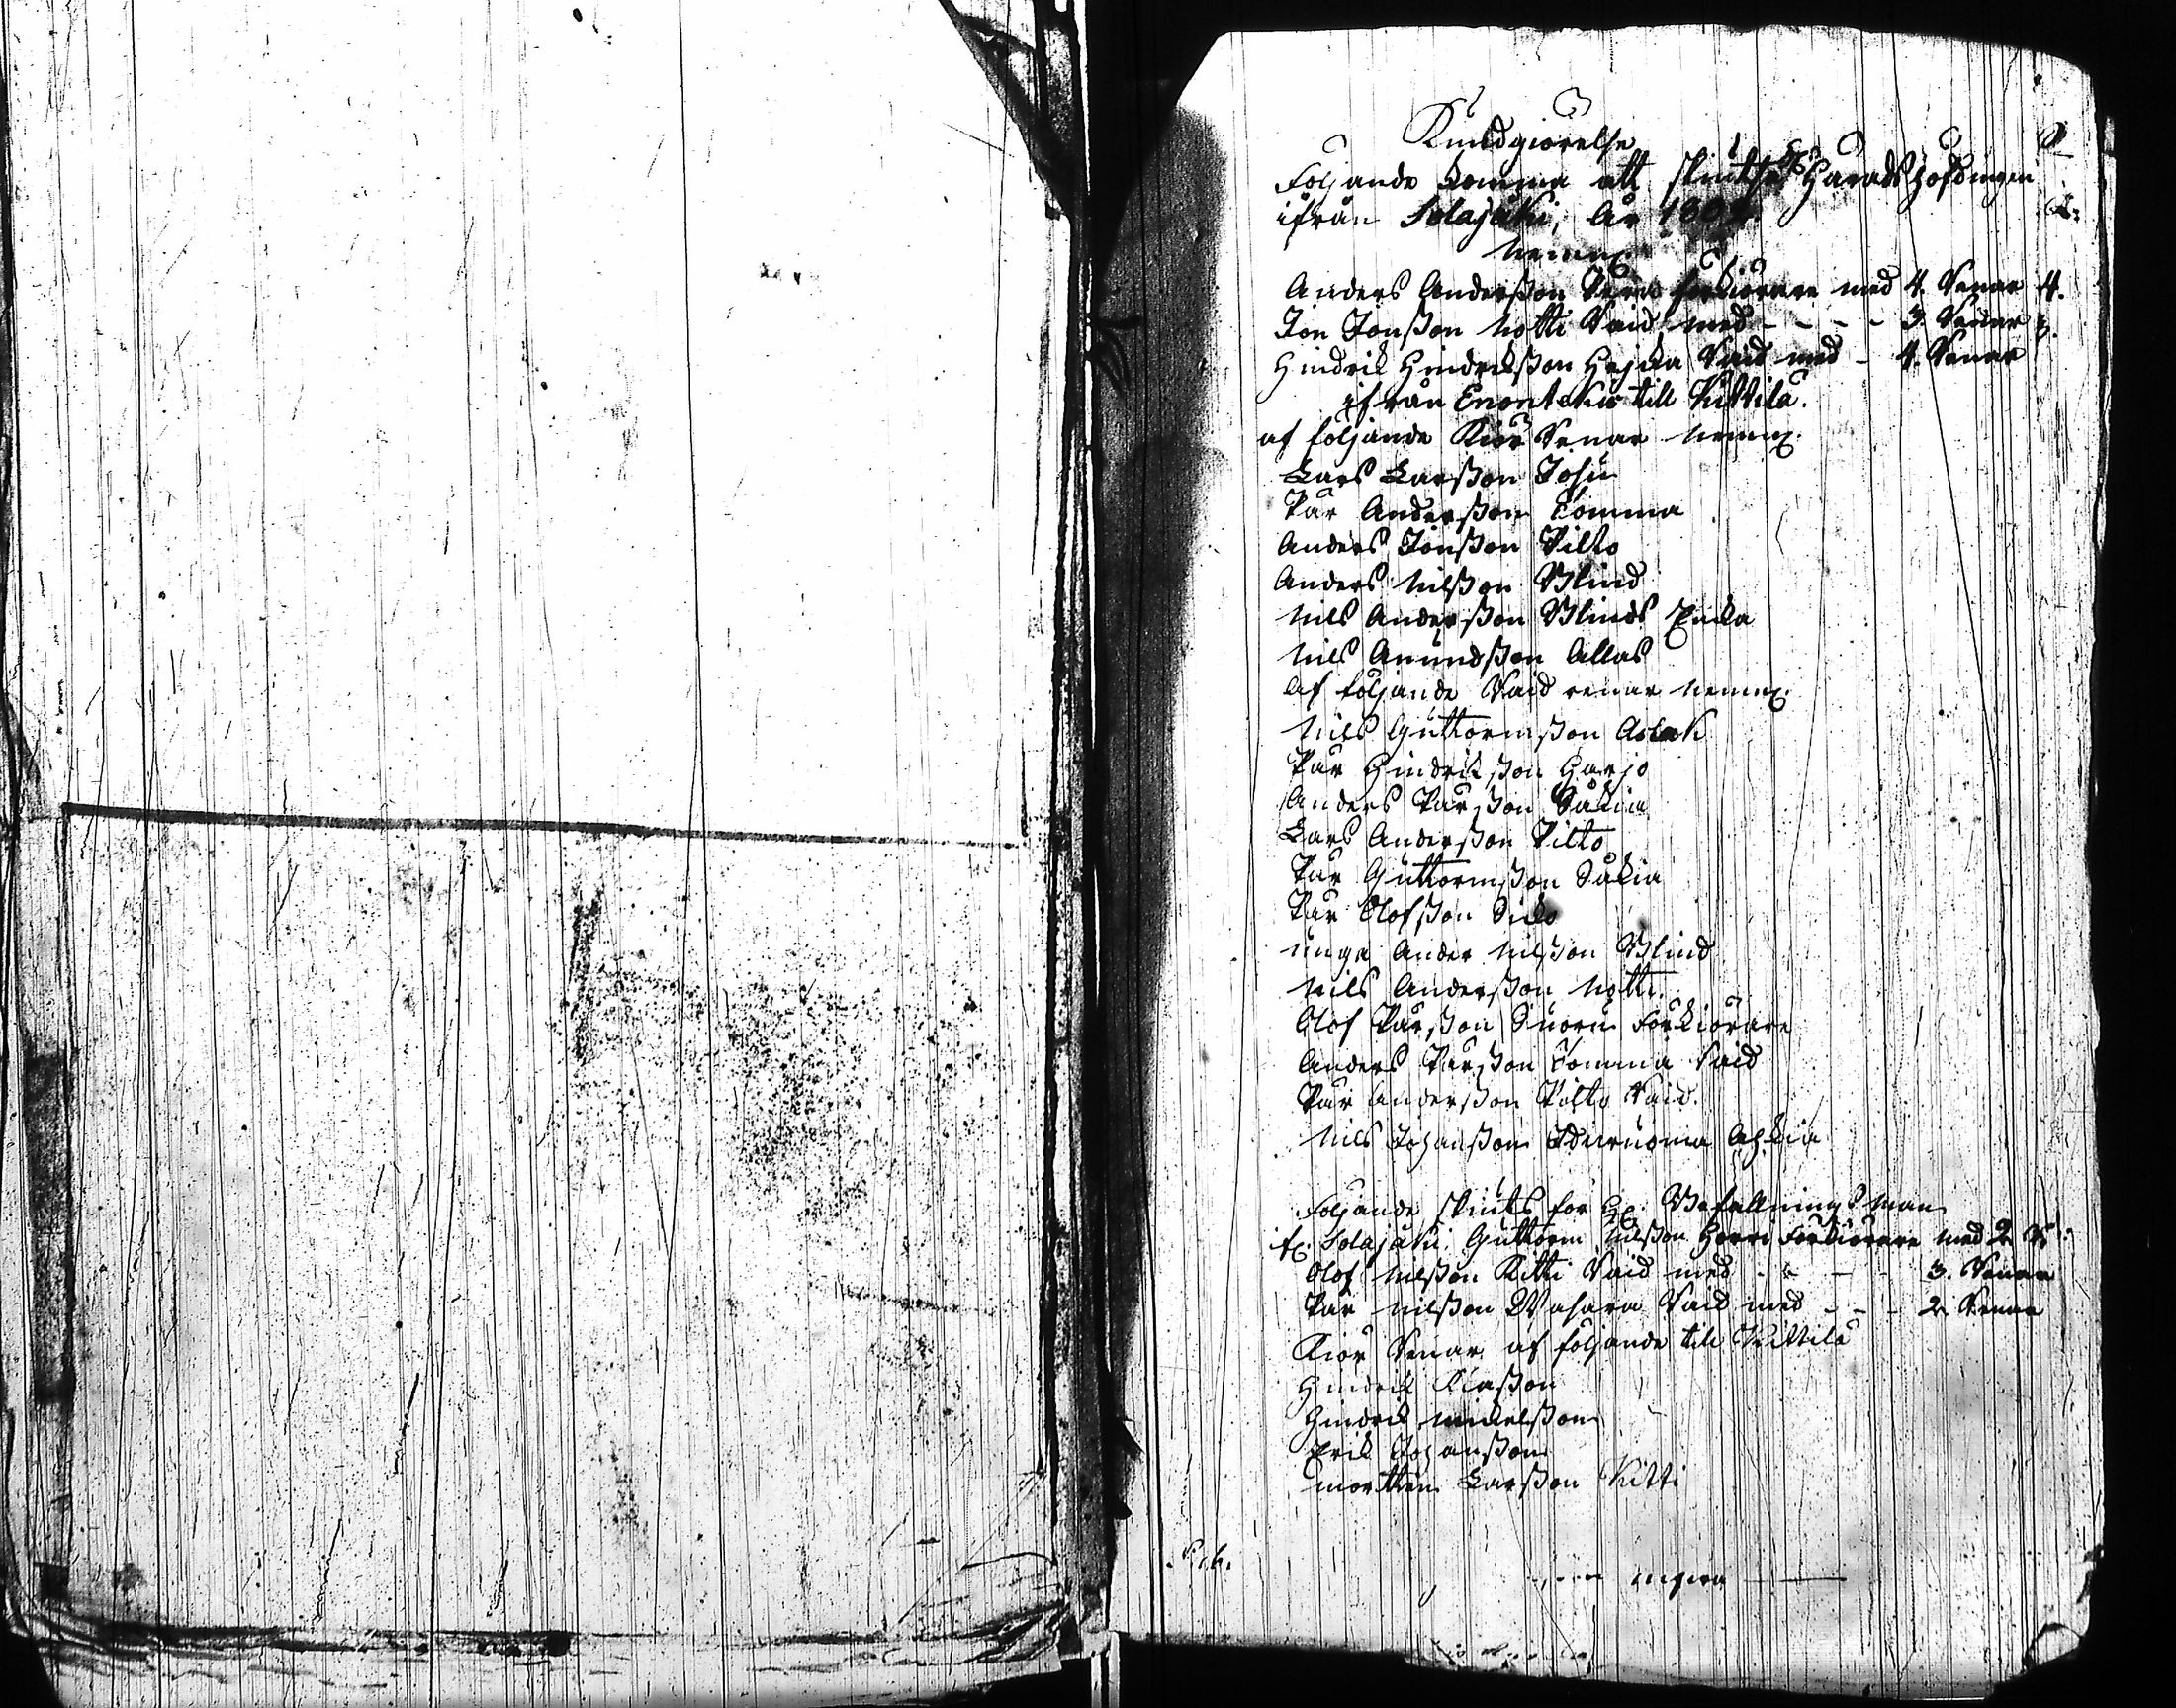 Kundgiörelse
Följande komma att skiutsa Häradshöfdingen
ifrån Solajäki, År 1802.
nemn:
Anders Andersson förkiörare med 4. Renar 4.
Jon Jonsson Notti Raid med - - - - 3 Renar 3.
Hindrik Hindriksson Raid med - 4. Renar
ifrån Enontekis till Kittilä.
af följande Kiör Renar nemn:
Lars Larsson Josu
Pär Andersson Tomma
Anders Jonsson Pilto
Anders Nilsson Blind
Nils Andersson Blinds Enka
Nils Amundsson Allas
Af följande Raid renar nemn:
Nils Guttormsson Aslak
Pär Hindriksson Harjo
Anders Pärsson Säkia
Lars Andersson Pilto
Pär Guttormsson Säkia
Pär Olofsson
unga Ander Nilsson Blind
Nils Andersson Notti
Olof Pärsson Suoru Förkiörare
Anders Pärsson Tomma Raid
Pär Andersson Pilto Raid.
Nils Johansson
Följande skiuts för H: Befallningsman
fr. Solajäki, Guttorm Nilsson Förkiörare med 2 R:
Olof Nilsson Kitti Raid med - - - 3. Renar
Pär Nilsson Wasara Raid med - - - 2 Renar
Kiör Renar af följande till Kittilä
Hindrik Klasson
Hindrik Mickelsson
Erik Johansson
Morthen Larsson Kitti